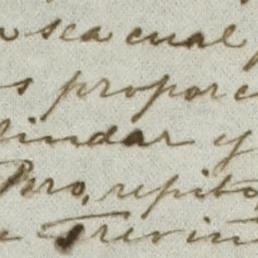 sea cual
s propor
lindar y
Pero, repito,
e Treviñ